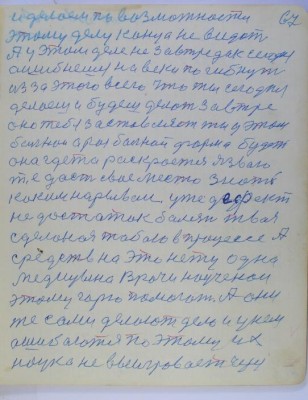 67
и делаем по возможности
этому делу конца не видать
А у этом деле не завтра дак
ошибнеш на веко погибнут
из за этого всего, што ты сегодня
делаеш и будеш делат завтре
оно тебя заставляет ты у этом
больное а раз больной форма будет
она где та раскроется язвою
те даст свое место
каким нарывам уже дефект
не достаток болят твая
сделоная тобою в процесе А
средств на это нету одна
медицина Врачи наученои
этому гарю помогат. А они
же сами делоют дело и у нем
ошибаются по этому их
наука не выигровает